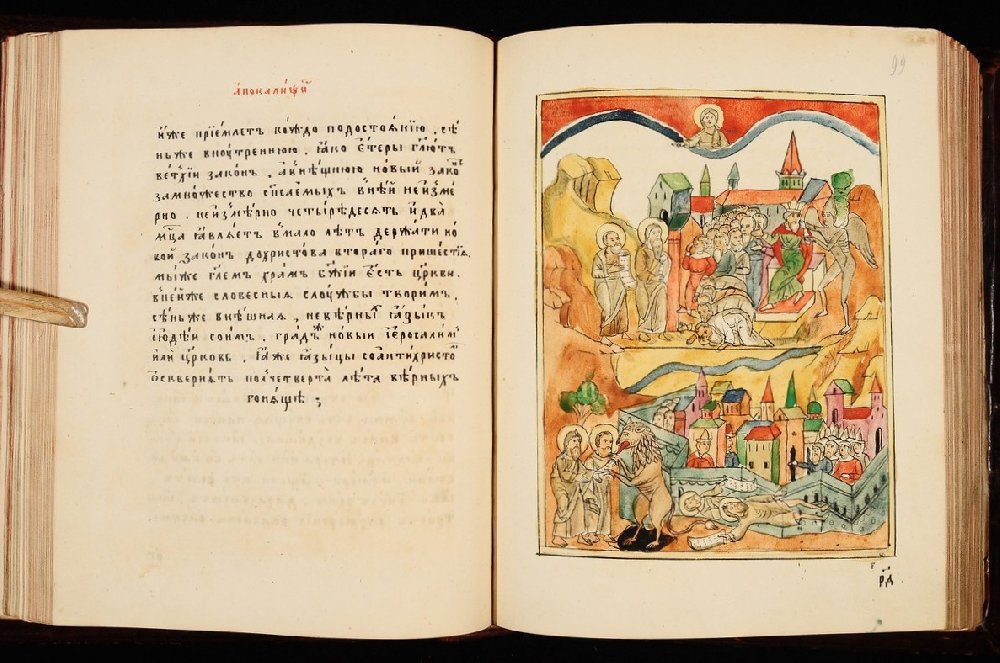 апокали́ѱїѡ
и́же прїе́млетъ ко́ждо подостоѧ́нїю , сѣ́
ньже вноу́треннюю , ꙗ҆́ко є҆́теры гл҃ютъ
ве́тхїи зако́н , а҆нн҃ѣшнюю но́выи зако́
замно́жество сп҃са́емыхъ в̾не́й неизмѣ́
рно , неизмѣ́рно четы́редесѧтъ и҆два̀
мц҃а ꙗ҆влѧ́етъ в̾ма́ло лѣ́тъ держа́ти но́
вои зако́нъ дохр҇то́ва втора́го прише́ствїѧ ,
мы́же гл҃ем хра́мъ бж҃їи є҆́сть цр҃кви ,
в̾не́йже слове́сныѧ слоу́жбы твори́м ,
сѣ́ньже внѣ́шнаѧ , невѣ́рны́ ꙗ҆зы́къ
і҆ю҆де́й со́нм , гра́дже но́выи і҆еросали́м
и҆лѝ цр҃ковь , ꙗ҆́же ꙗ҆зы́цы соа҆нтихри́сто
ѡ҆скверня́тъ полче́тверта лѣ́та вѣ́рныхъ
гоня́ще ;
99
р҃д